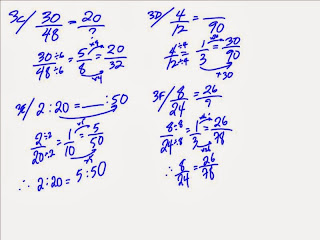 3C/ 30/48 = 20/?
30÷6/48÷6 = 5/8 = 20/32
x4
x4
3D/ 4/12 = __/90
4÷4/12÷4 = 1/3 = 30/90
x30
3E/ 2:20 = __:50
2÷2/20÷2 = 1/10 = 5/50
x5
x5
∴ 2:20 = 5:50
3F/ 8/24 = 26/?
8÷8/24÷8 = 1/3 = 26/78
x26
∴ 8/24 = 26/78